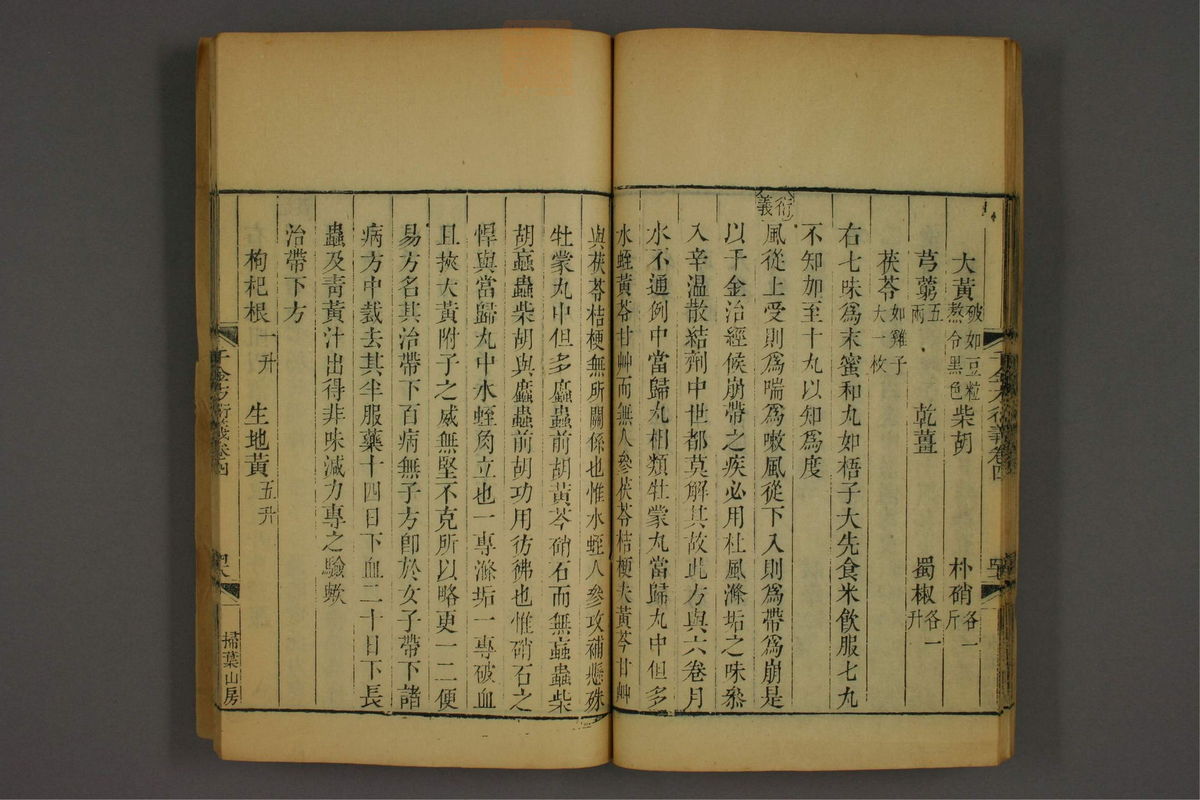 大黃破如豆粒熬令黑色 柴胡 朴硝各一斤
芎藭五兩 乾薑 蜀椒各一升
茯苓如雞子大一枚
右七味爲末蜜和丸如梧子大先食米飲服七丸
不知加至十丸以知爲度
衍義
風從上受則爲喘爲嗽風從下入則爲帶爲崩是
以千金治經候崩帶之疾必用杜風滌垢之味叅
入辛溫散結劑中世都莫解其故此方與六卷月
水不通例中當歸丸相類牡蒙丸當歸丸中但多
水蛭黃芩甘艸而無人參茯苓桔梗夫黃芩甘艸
與茯苓桔梗無所關係也惟水蛭人參攻補懸殊
牡蒙丸中但多䗪蟲前胡黃芩硝石而無蝱蟲柴
胡蝱蟲柴胡與䗪蟲前胡功用彷彿也惟硝石之
悍與當歸丸中水蛭角立也一專滌垢一專破血
且挾大黃附子之威無堅不克所以略更一二便
易方名其治帶下百病無子方卽於女子帶下諸
病方中裁去其半服藥十四日下血二十日下長
蟲及靑黃汁出得非味減力專之驗歟
治帶下方
枸杞根一升 生地黃五升
千金方衍義卷四
掃葉山房